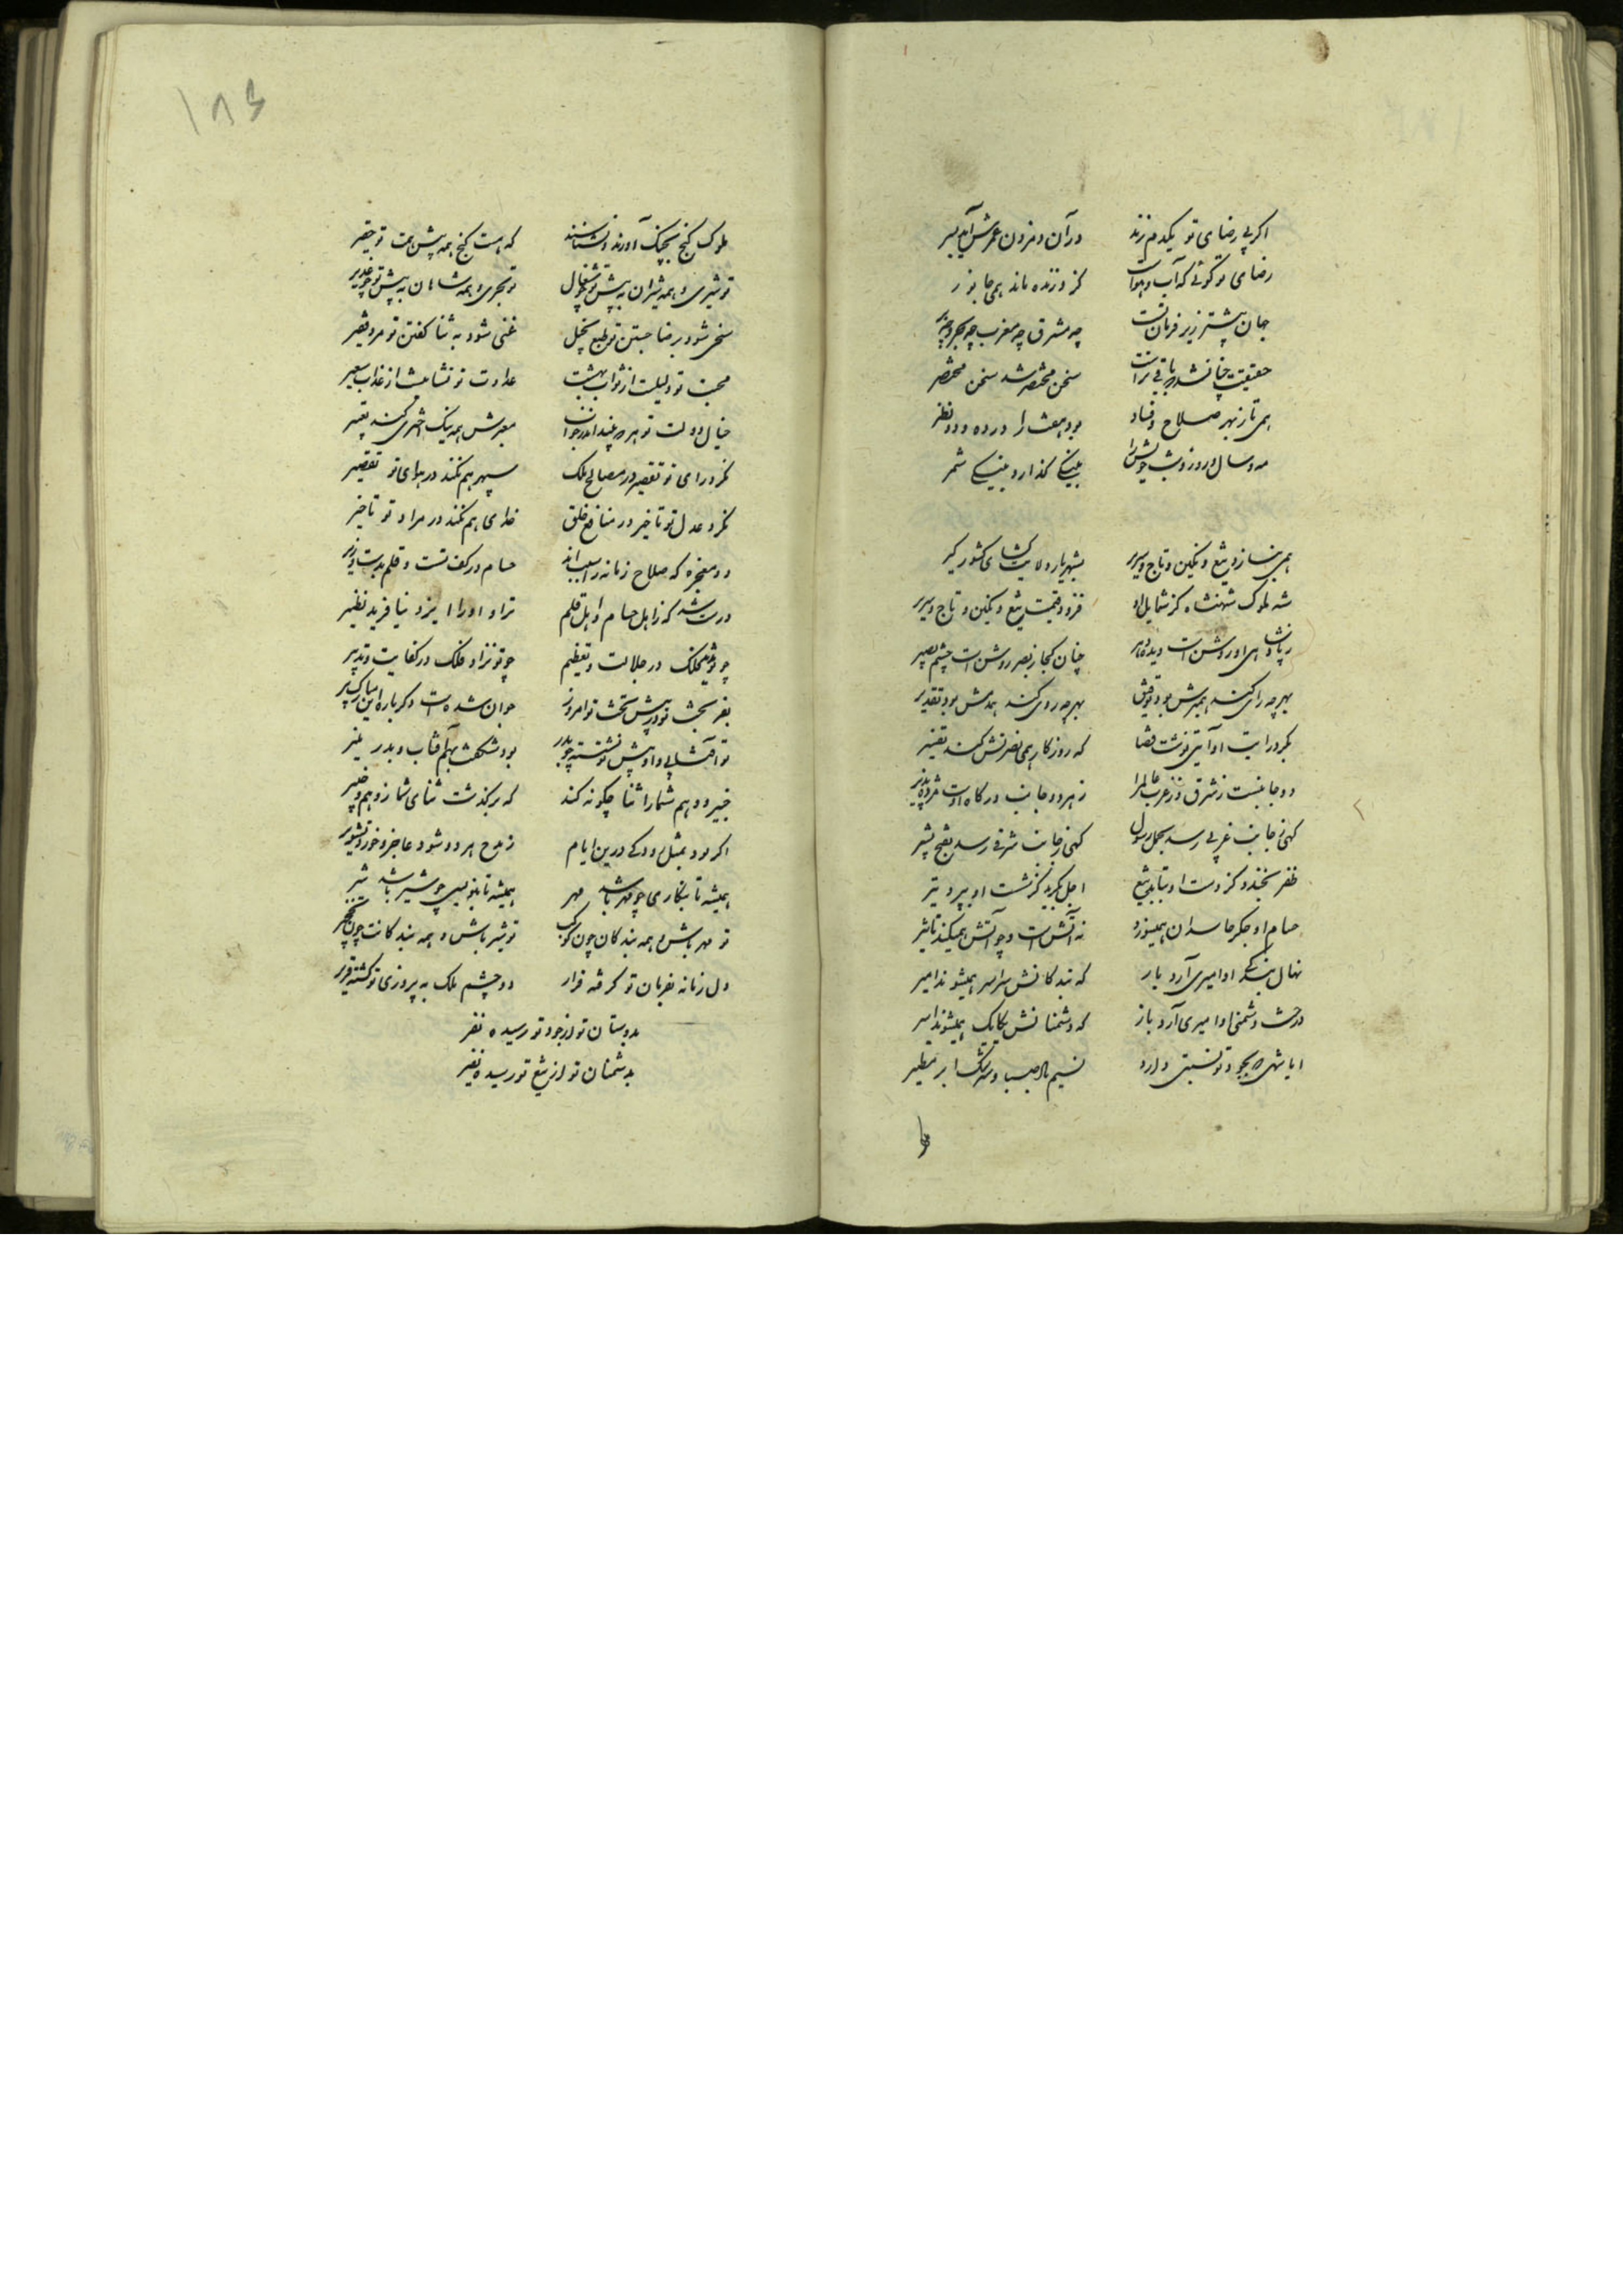 اکر بی رضای تو یکدم زند در آن دم زدن عمرش آید بسر
رضای تو کوئی که آب و هواست کزو زنده ماند همی جانور
جهان بیشتر زیر فرمان تست چه مشرق چه مغرب چه بحر و چه بر
حقیقت چنان شد سخن مختصر شد سخن مختصر
همی تا ز بهر صلاح و فساد بود هفت را در ده و دو نظر
مه و سال و روز و شب خویش را بنیکی کذار و بنیکی شمر
همی بنازد تیغ و نکین و تاج و سریر بشهریار ولایت کشای کشور کیر
شه ملوک شهنشاه کز شمایل او فزود قیمت تیغ و نکین و تاج و سریر
ز پادشاهی او روشن است دیده چنان کجا ز بصر روشن است چشم بصیر
بهر چه رای کند همبرش بود توفیق بهر چه روی کند همرهش بود تقدیر
مکر درایت او آیتی نوشت قضا که روزکار همی نصرتش کند تفسیر
دو جانبست ز شرق و ز غرب عالم را ز هر دو جانب درکاه اوست مژده پذیر
کهی ز جانب غربی رسد بحمل رسول کهی ز جانب شرقی رسد بفتح بشیر
ظفر بخندد کز دست او بتابد تیغ اجل بکرید کز شست او بپرد تیر
حسام او جکر حاسدان همیسوزد نه آتش است و چو آتش همیکند تاثیر
نهال بندکی او امیری آرد بار که بندکانش سراسر همیشوند امیر
درخت دشمنی او اسیری آرد باز که دشمنانش یکایک همیشوند اسیر
ایا شهی که بجود تو نسبتی دارد نسیم باد صبا و سرشک ابر مطیر
۱۸۶
ملوک کنج بچنک آورند و نشناسند که هست کنج همه پیش همت تو حقیر
تو شیری و همه شیران به پیش تو چو شغال تو بحری و همه شاهان به پیش تو چو غدیر
سخی شود برضا جستن تو طبع بخیل غنی شود به ثنا کفتن تو مرد فقیر
محبت تو دلیلست از ثواب بهشت عداوت تو نشانیست از عذاب سعیر
خیال دولت تو هر چه بیند اندر خواب معبرش همه نیک اختری کند تعبیر
نکرد رای تو تقصیر در مصالح ملک سپهر هم نکند در هوای تو تقصیر
نکرد عدل تو تاخیر در منافع خلق خدای هم نکند در مراد تو تاخیر
دو معجزه که صلاح زمانه را سبب اند حسام در کف تست و قلم بدست وزیر
درست شد که ز اهل حسام و اهل قلم ترا و او را ایزد نیافرید نظیر
چو تو ندید فلک در جلالت و تعظیم چو تو نزاد ملک در کفایت و تدبیر
بفر بخت تو در پیش تخت تو امروز جوان شده است دکر باره این مبارک پیر
تو آفتابی و او پیش تو نشسته چو بدر بود شکفت بهم آفتاب و بدر منیر
ضمیر و وهم شما را ثنا چکونه کند که برکذشت ثنای شما ز وهم و ضمیر
اکر بود بمثل رودکی درین ایام ز مدح هر دو شود عاجز و خورد تشویر
همیشه تا بنکاری چو مهر باشد مهر همیشه تا بنویسی چو شیر باشد شیر
تو مهر باش و همه بندکان چون کوکب تو شیر باش و همه بندکانت چون نخجیر
دل زمانه بفرمان تو کرفته قرار دو چشم ملک به پیروزی تو کشته قریر
بدوستان تو از جود تو رسیده نفر
بدشمنان تو از تیغ تو رسیده نفیر